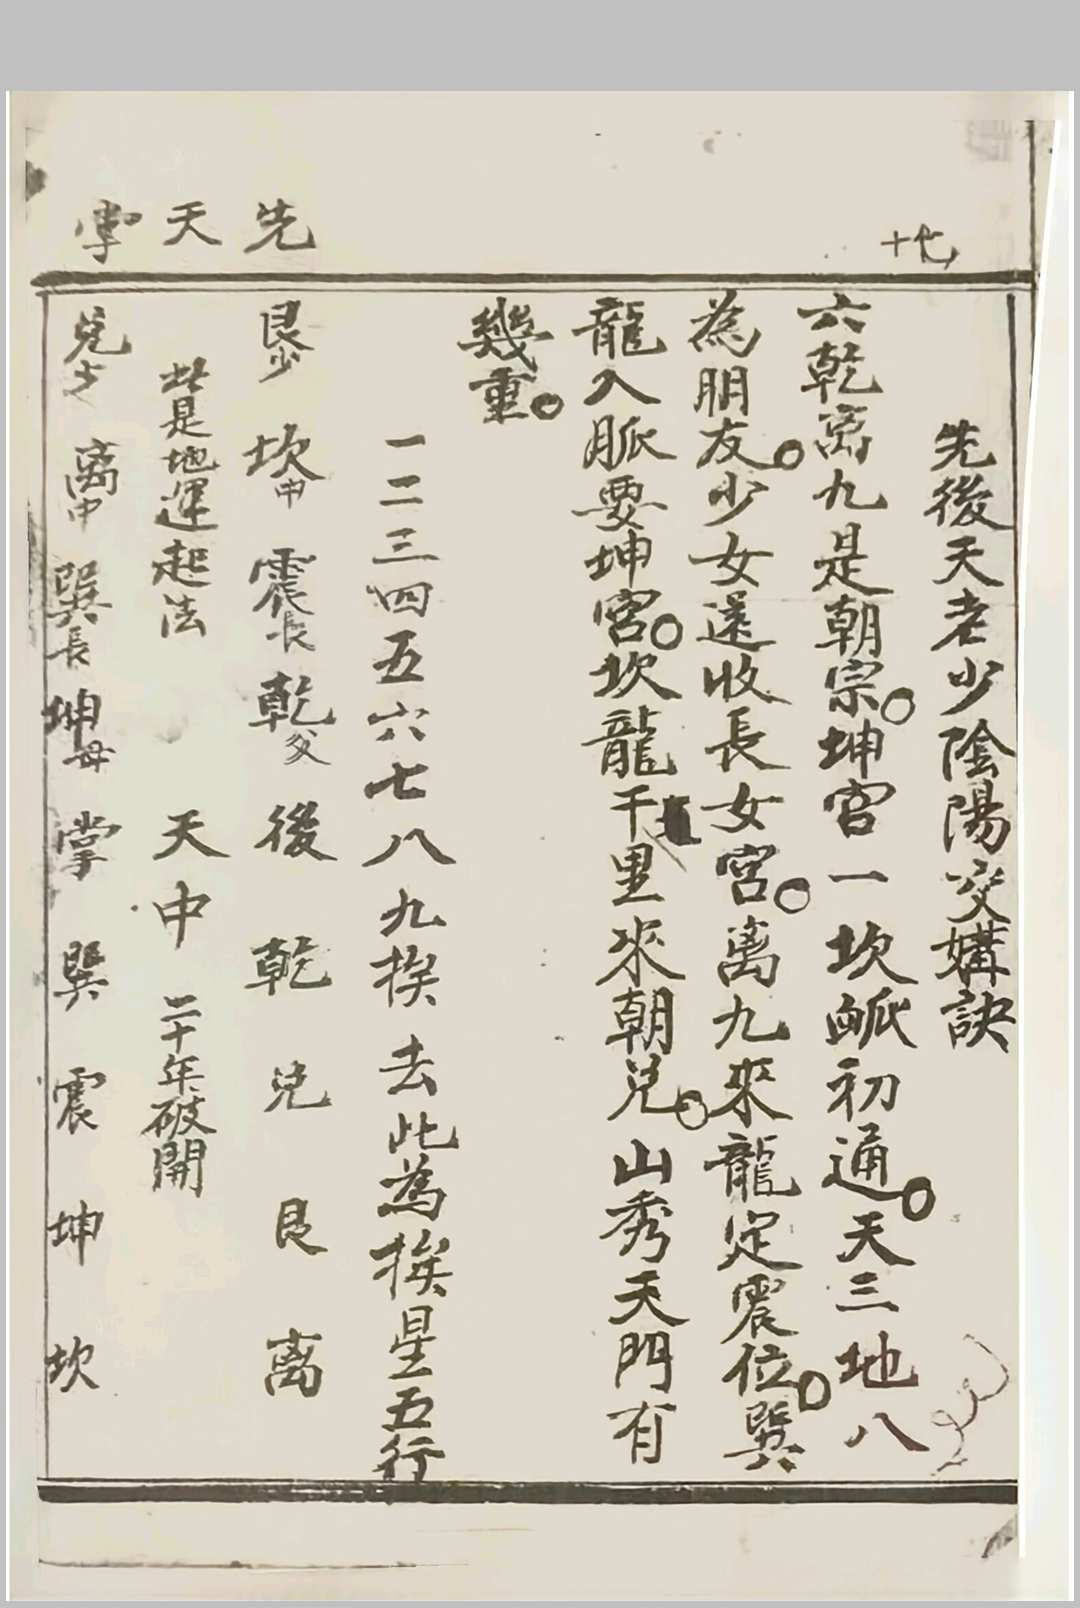 十七
先天掌
先後天老少陰陽交媾訣
六乾离九是朝宗。坤宮一坎脈初通。天三地八
為朋友。少女還收長女宮。离九來龍定震位。巽
龍入脈要坤宮。坎龍千里來朝兌。山秀天門有
幾重。
一二三四五六七八九挨去此為挨星五行
艮少 坎中 震長 乾父 後 乾 兌 艮 离
此是地運起法 天中 二十年破開
兌少 离中 巽長 坤母 掌 巽 震 坤 坎